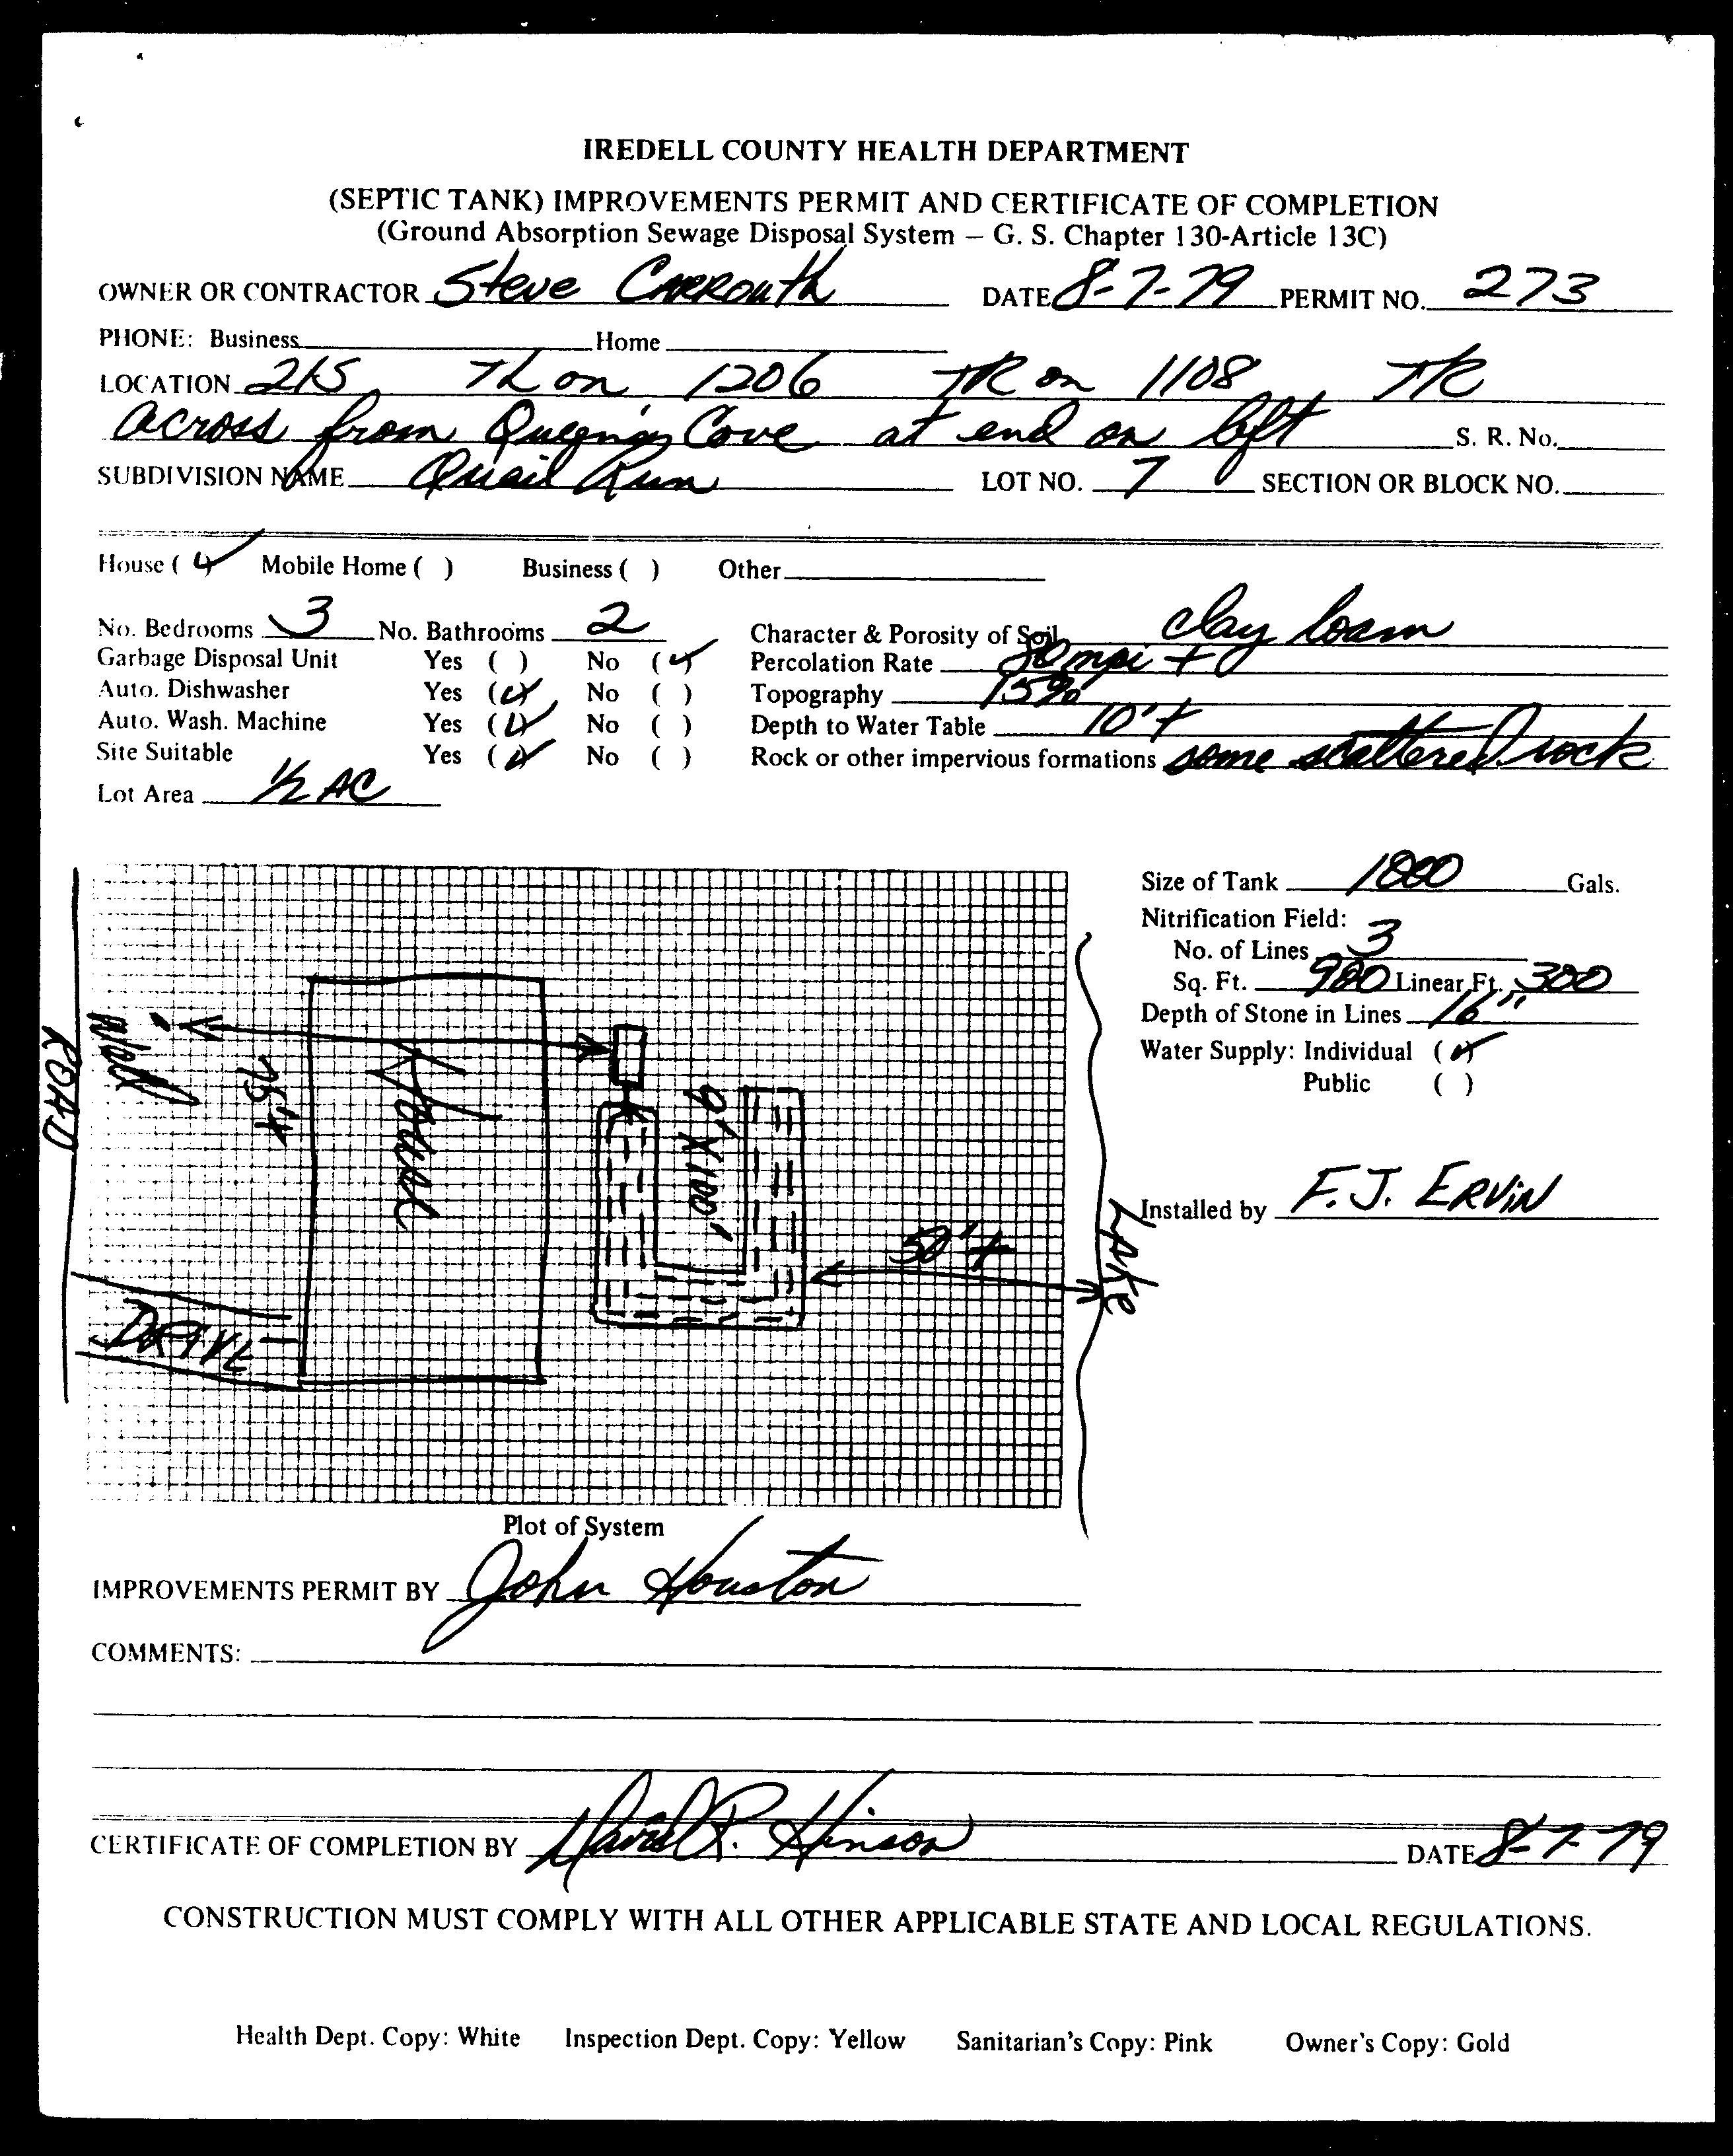 IREDELL COUNTY HEALTH DEPARTMENT
(SEPTIC TANK) IMPROVEMENTS PERMIT AND CERTIFICATE OF COMPLETION
(Ground Absorption Sewage Disposal System – G. S. Chapter 130-Article 13C)
OWNER OR CONTRACTOR Steve CARROUth DATE 8-7-79 PERMIT NO. 273
PHONE: Business Home
LOCATION 21S TL on 1206 TR on 1108 TR
across from Cove at end on left S. R. No.
SUBDIVISION NAME Quail Run LOT NO. 7 SECTION OR BLOCK NO.
House ( ) Mobile Home ( ) Business ( ) Other
No. Bedrooms 3 No. Bathrooms 2 Character & Porosity of Soil clay loam
Garbage Disposal Unit Yes ( ) No (✓) Percolation Rate mpi +
Auto. Dishwasher Yes (✓) No ( ) Topography 15%
Auto. Wash. Machine Yes (✓) No ( ) Depth to Water Table 10'+
Site Suitable Yes (✓) No ( ) Rock or other impervious formations some scattered rock
Lot Area 1/2 AC
Size of Tank 1000 Gals.
Nitrification Field:
No. of Lines 3
Sq. Ft. 900 Linear Ft. 300
Depth of Stone in Lines 16"
Water Supply: Individual (✓)
Public ( )
Installed by F. J. ERViN
ROAD
Well
75'+
House
9' X 100'
50'+
Lake
DRIVE
Plot of System
IMPROVEMENTS PERMIT BY John Houston
COMMENTS:
CERTIFICATE OF COMPLETION BY David R. Hinson DATE 8-7-79
CONSTRUCTION MUST COMPLY WITH ALL OTHER APPLICABLE STATE AND LOCAL REGULATIONS.
Health Dept. Copy: White Inspection Dept. Copy: Yellow Sanitarian's Copy: Pink Owner's Copy: Gold